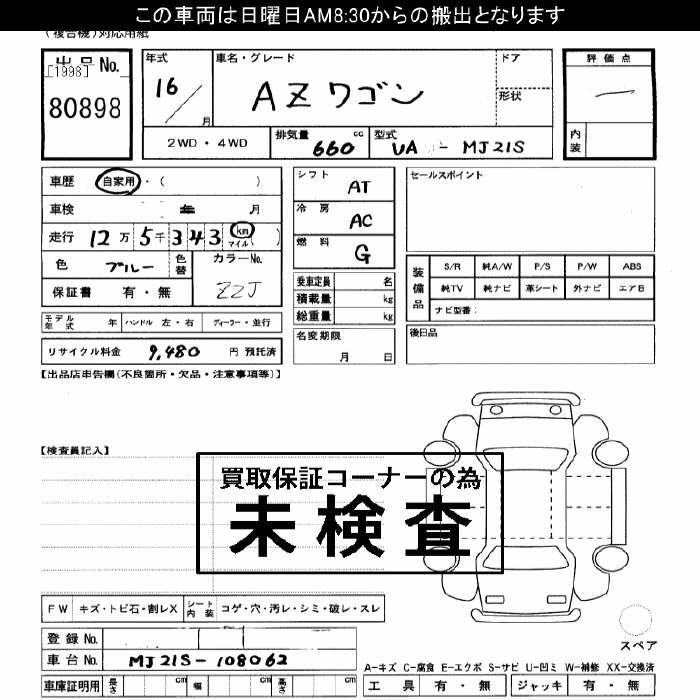 この車両は日曜日AM8:30からの搬出となります
(複合機)対応用紙
出品No.
[1998]
80898
年式
16/
月
車名・グレード
AZワゴン
ドア
形状
評価点
一
内装
2WD・4WD
排気量 660 cc
型式 UA - MJ21S
車歴 自家用・( )
車検 年 月
走行 12万5千343 km マイル ( )
色 ブルー
色替
カラーNo. ZZJ
保証書 有・無
シフト AT
冷房 AC
燃料 G
乗車定員 名
積載量 kg
総重量 kg
セールスポイント
装備品
S/R 純A/W P/S P/W ABS
純TV 純ナビ 革シート 外ナビ エアB
ナビ型番:
モデル年式 年 ハンドル 左・右 ディーラー・並行
リサイクル料金 9,480 円 預託済
名変期限
月 日
後日品
【出品店申告欄(不良箇所・欠品・注意事項等)】
【検査員記入】
買取保証コーナーの為
未検査
FW キズ・トビ石・割レX
シート内装 コゲ・穴・汚レ・シミ・破レ・スレ
登録No.
車台No. MJ21S-108062
車庫証明用 長さ cm 幅 cm 高さ cm
スペア
A-キズ C-腐食 E-エクボ S-サビ U-凹ミ W-補修 XX-交換済
工具 有・無 ジャッキ 有・無